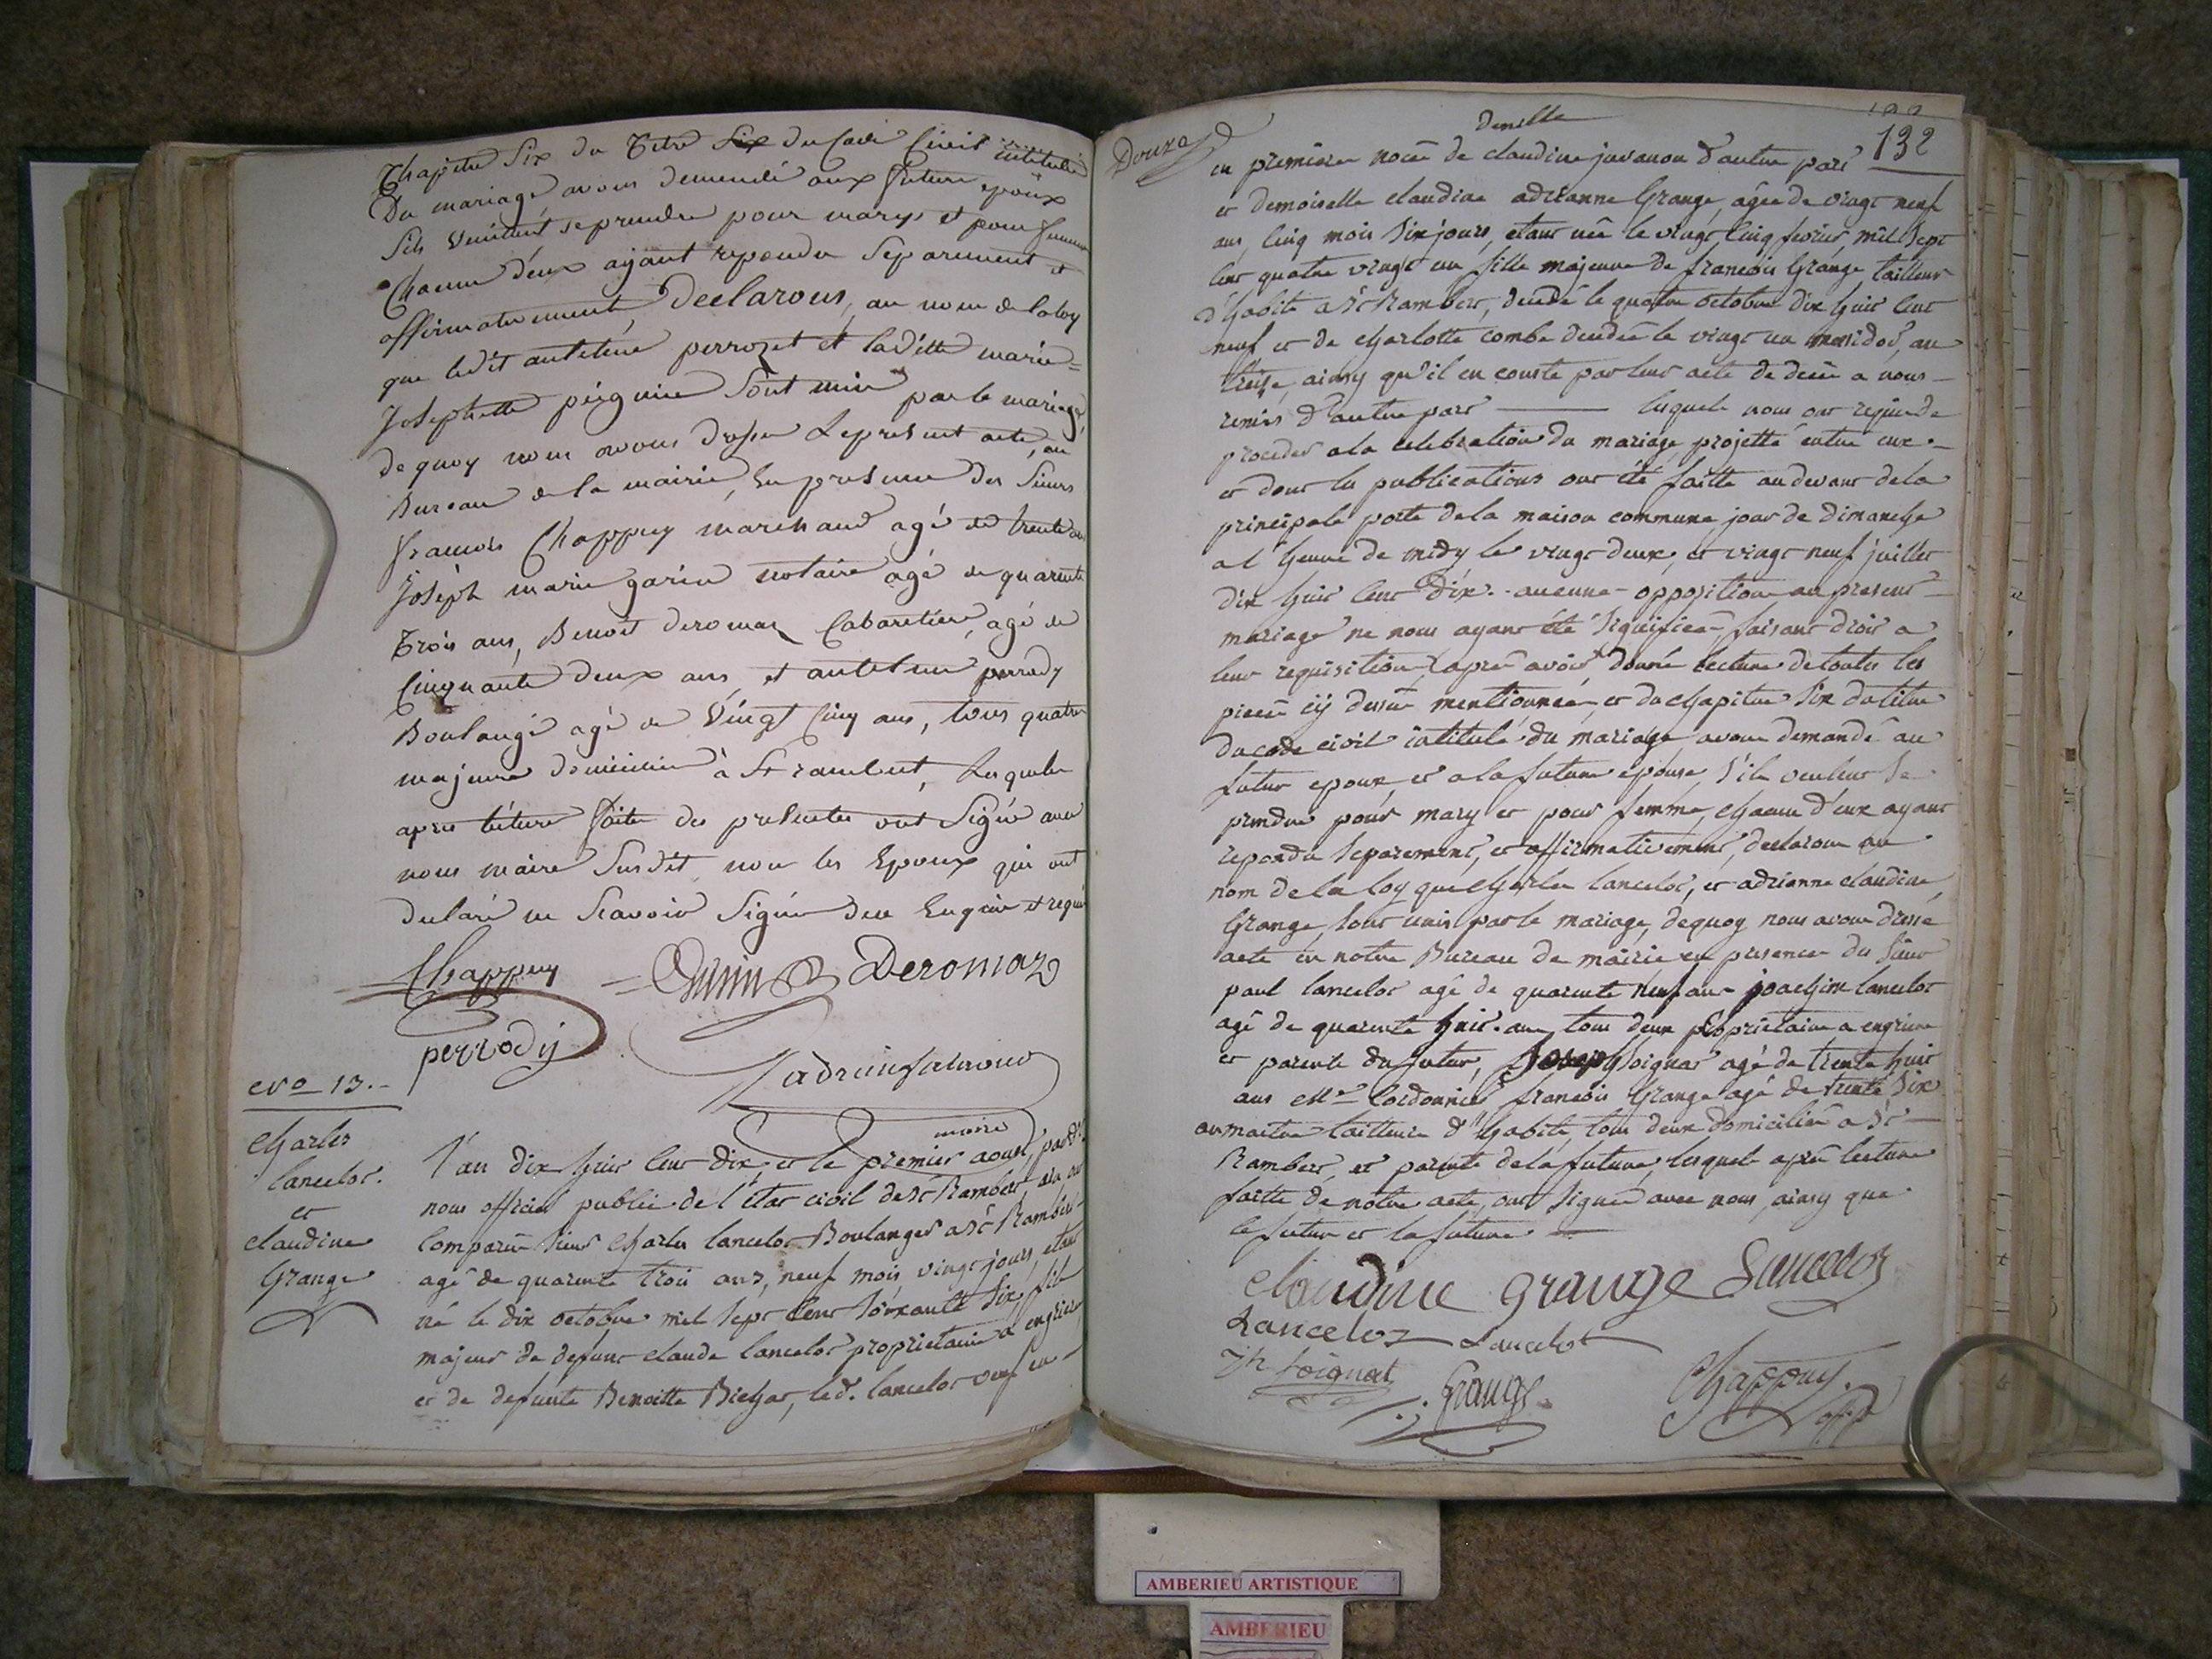 Chapitre Six du Titre Six du Code Civil intitulé
Du mariage, avons demendé aux future epoux
Sils veuillent se prendre pour marys et pour femme
Chacun d'eux ayant repondu Separement et
affirmativement, Declarons, au nom de la loy
que ledit antelme perrozet et laditte marie=
Josephette sont unis par le mariage,
de quoy nous avons dressé Le present acte, au
Bureau de la mairie, En presence des Sieurs
francois Chappuy marchand agé de trente ans
Joseph marie garin notaire agé de quarente
Trois ans, Benoit deromaz Cabaretier, agé de
Cinquante deux ans et antelme perrody
Boulangé agé de Vingt Cinq ans, tous quatre
majeurs domicilié à St rambert, Lesquels
apres lécture faite des presentes ont Signé avec
nous maire Susdit, non les Epoux qui ont
declaré ne Scavoir Signer de ce Enquis et requis
Chappuy Deromaz
perrody
maire
No 13.-
Charles
lancelot.
et
claudine
Grange
l'an dix huit cent dix, et le premier aoust, pardt
nous officier public de l'état civil de St Rambert, 
Comparu Sieur Charles lancelot Boulanger a St Rambert
agé de quarente trois ans, neuf mois, vingt jours, etant
né le dix octobre mil sept cent soixante Six, fils
majeur de defunt claude lancelot proprietaire a engrieu
et de defunte Benoitte Bichat, led. lancelot veuf en
Douze
132
en premiere noce de claudine juvanon d'autre part
et demoiselle claudine adrianne Grange, agée de vingt neuf
ans, cinq mois six jours, etant née le vingt cinq fevrier, mil Sept
cent quatre vingt un fille majeure de francois Grange tailleur
d'habits a St Rambert, decedé le quatre octobre dix huit cent
neuf et de charlotte combe decedée le vingt un messidor, an
treize, ainsy qu'il en conste par leur acte de décès a nous
remis d'autre part —— lesquels nous ont requis de
proceder a la celebration du mariage projetté entre eux
et dont les publications ont été faitte au devant de la
principale porte de la maison commune, jour de dimanche
a l'heure de midy le vingt deux, et vingt neuf juillet
dix huit cent dix. aucune opposition au present
mariage ne nous ayant été signifiée, faisant droit a
leur requisition, après avoir donné lecture de toutes les
pieces cy dessus mentionnées et du chapitre Six du titre
du code civil intitulé du mariage, avons demandé au
futur epoux, et a la future epouse, s'ils veulent se
prendre pour mary et pour femme, chacun d'eux ayant
repondu Separement, et affirmativement, declarons au
nom de la loy que Charles lancelot, et adrianne claudine
Grange, sont unis par le mariage, dequoy nous avons dressé
acte en notre Bureau de mairie en presence des Sieurs
paul lancelot agé de quarente neuf ans joachim lancelot
agé de quarente huit ans, tous deux proprietaire a engrieu
et parents du futur, Joseph Soignat agé de trente huit
ans Me Cordonnier francois Grange agé de trente Six
ans maitre tailleur d'habits, tous deux domiciliés a St
Rambert, et parents de la future, lesquels après lecture
faitte de notre acte, ont signé avec nous, ainsy que
le futur et la future
Claudine grange Lancelot
Lancelot Lancelot
Jh Soignat Grange Chappuy